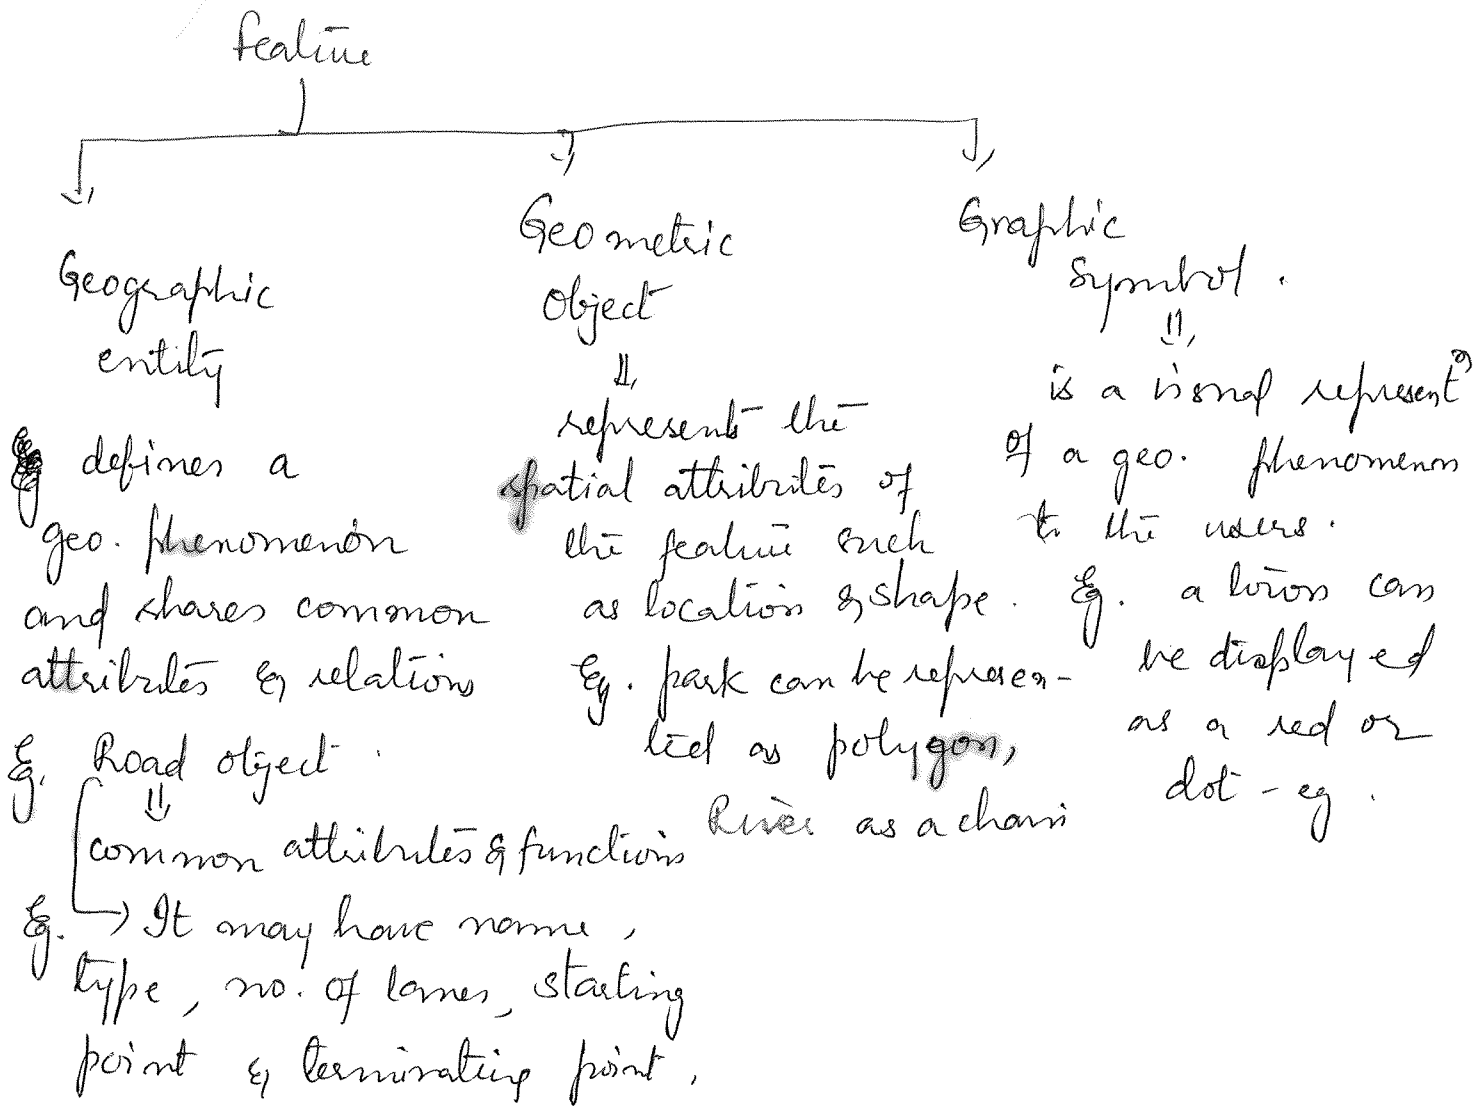 Feature
Geographic
entity
defines a
geo. phenomenon
and shares common
attributes & relations
Eg. Road object
common attributes & functions
Eg. → It may have name,
type, no. of lanes, starting
point & terminating point,
Geometric
object
represents the
spatial attributes of
the feature such
as location & shape.
Eg. park can be represen-
ted as polygon,
River as a chain
Graphic
Symbol.
is a visual represent
of a geo. phenomenon
to the users.
Eg. a town can
be displayed
as a red or
dot - eg.